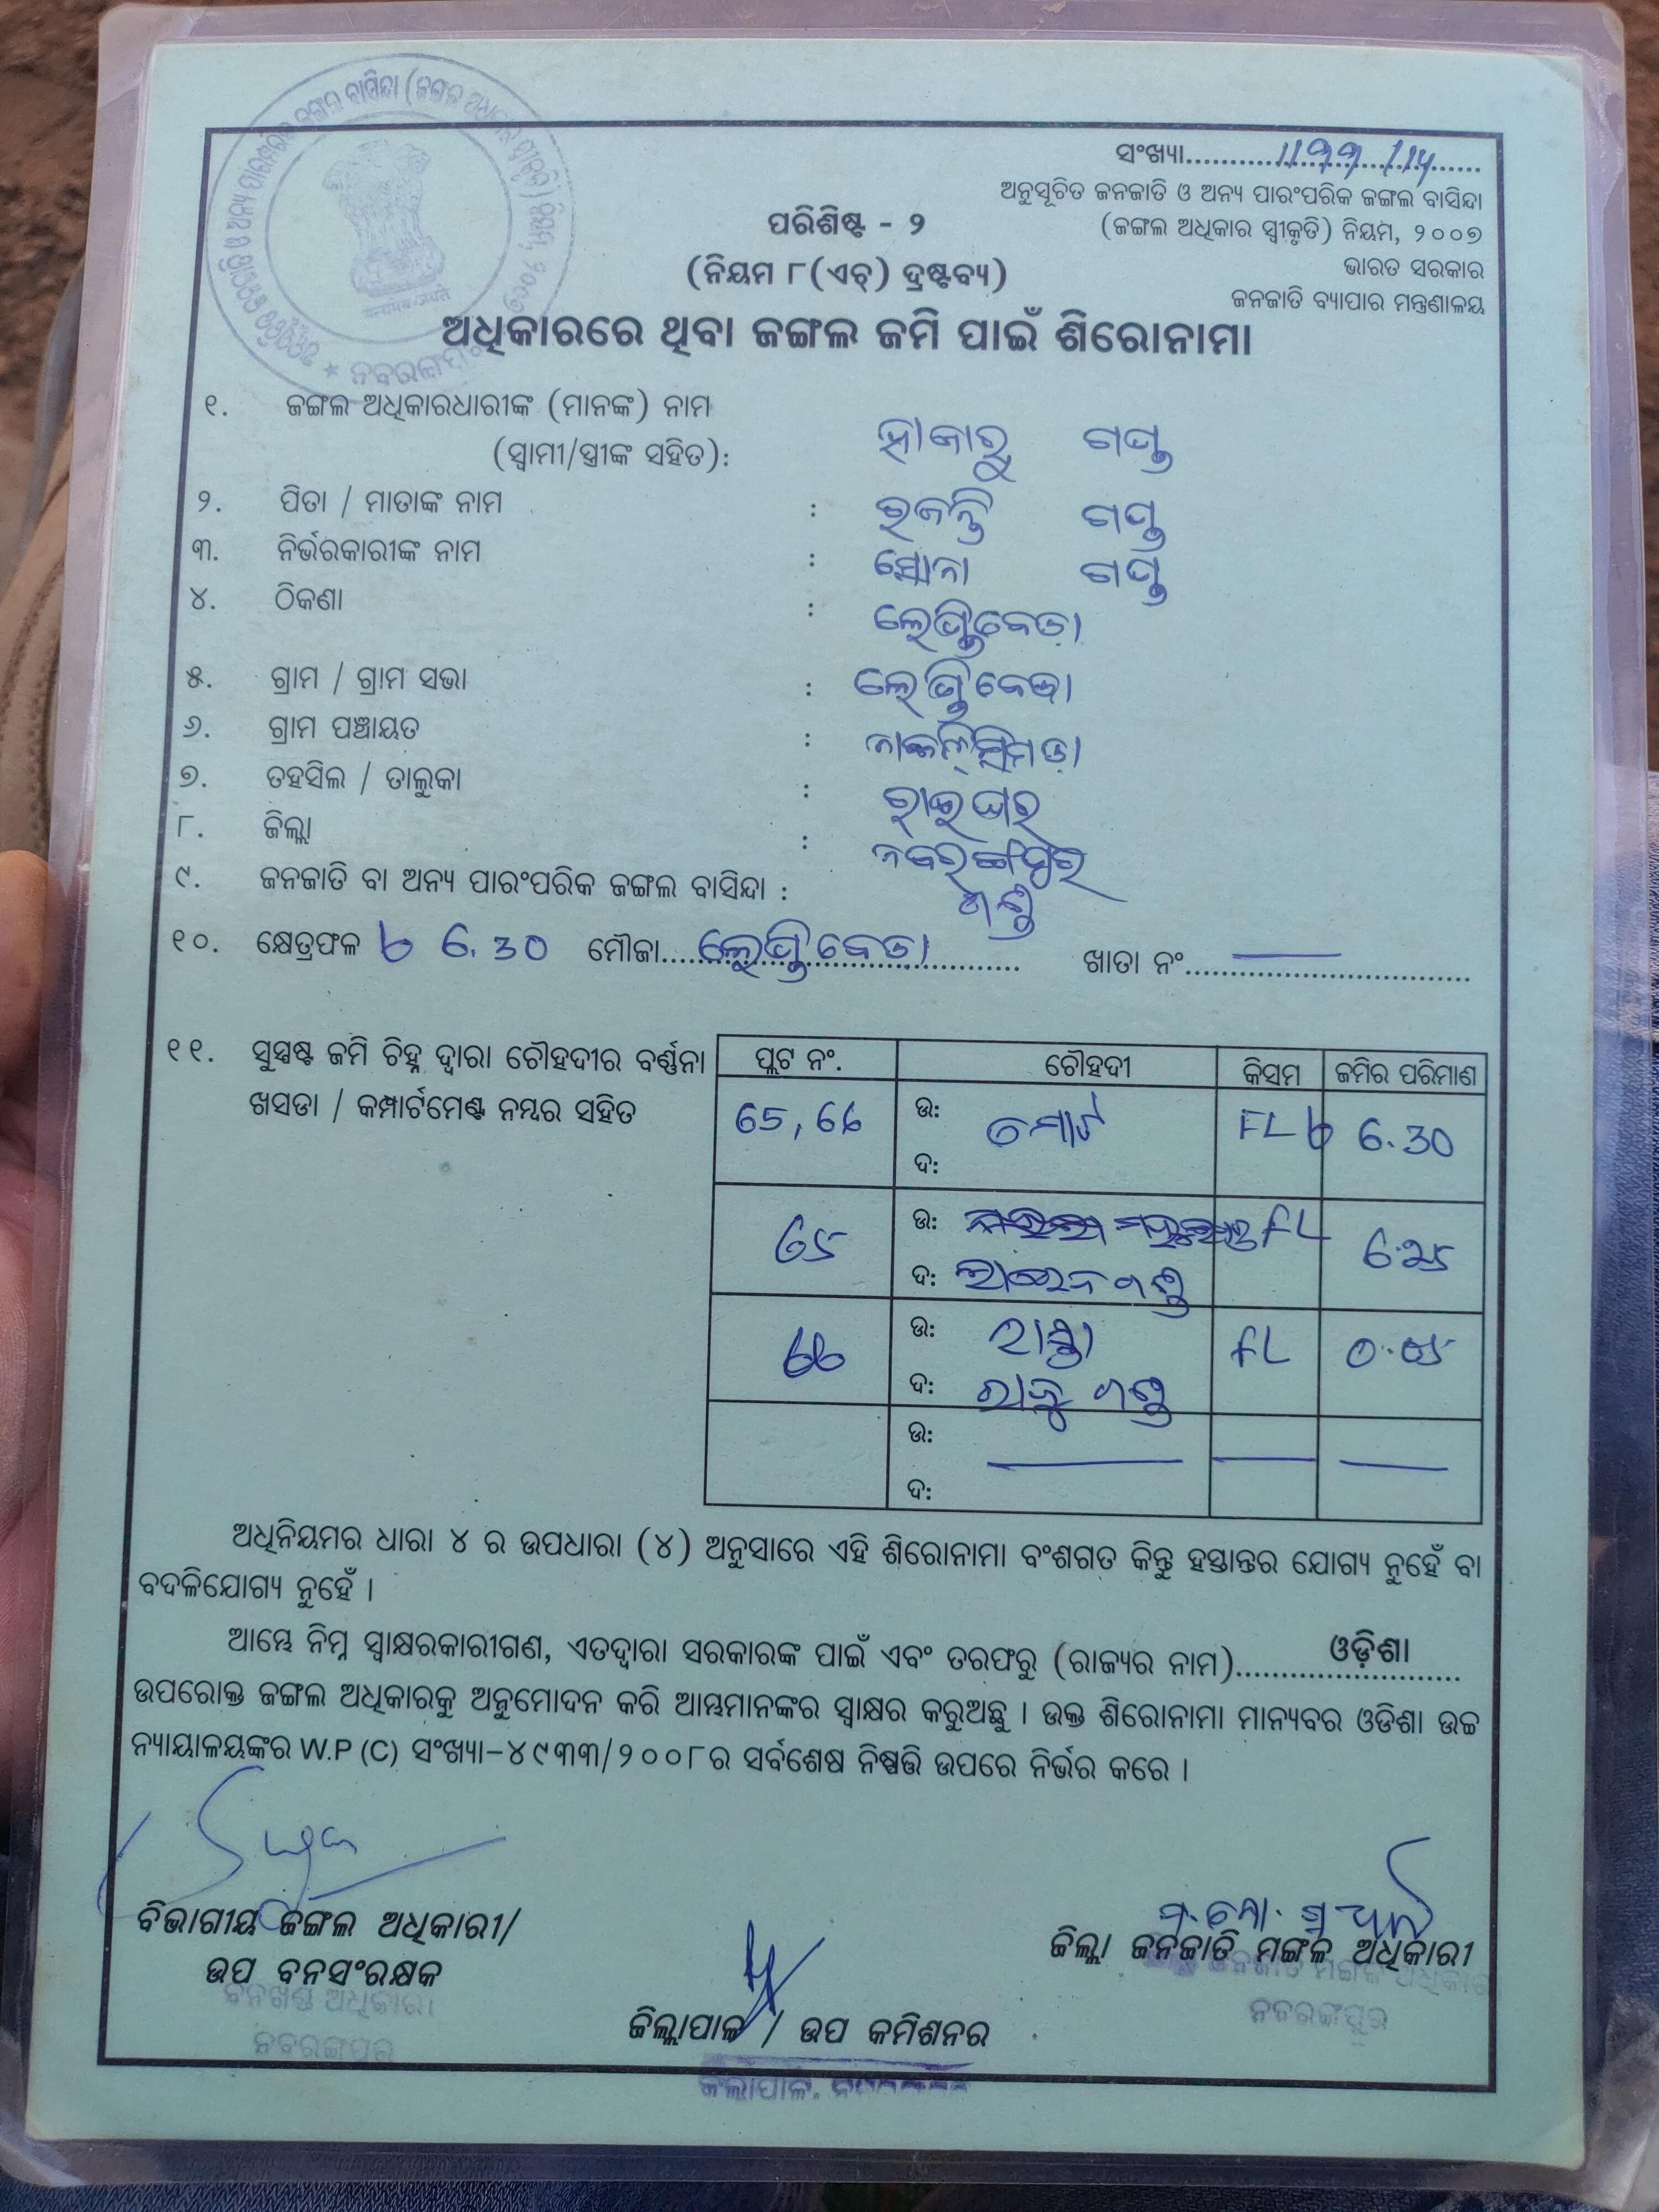 ସଂଖ୍ୟା
ଅନୁସୂଚିତ ଜନଜାତି ଓ ଅନ୍ୟ ପାରଂପରିକ ଜଙ୍ଗଲ ବାସିନ୍ଦା
(ଜଙ୍ଗଲ ଅଧିକାର ସ୍ୱୀକୃତି) ନିୟମ, ୨୦୦୭
ଭାରତ ସରକାର
ଜନଜାତି ବ୍ୟାପାର ମନ୍ତ୍ରଣାଳୟ
ପରିଶିଷ୍ଟ - ୨
(ନିୟମ ୮(ଏଚ୍) ଦ୍ରଷ୍ଟବ୍ୟ)
ଅଧିକାରରେ ଥିବା ଜଙ୍ଗଲ ଜମି ପାଇଁ ଶିରୋନାମା
୧. ଜଙ୍ଗଲ ଅଧିକାରଧାରୀଙ୍କ (ମାନଙ୍କ) ନାମ
(ସ୍ୱାମୀ/ସ୍ତ୍ରୀଙ୍କ ସହିତ):
୨. ପିତା / ମାତାଙ୍କ ନାମ :
୩. ନିର୍ଭରକାରୀଙ୍କ ନାମ :
୪. ଠିକଣା :
୫. ଗ୍ରାମ / ଗ୍ରାମ ସଭା :
୬. ଗ୍ରାମ ପଞ୍ଚାୟତ :
୭. ତହସିଲ / ତାଲୁକା : ରାଇଘର
୮. ଜିଲ୍ଲା : ନବରଙ୍ଗପୁର
୯. ଜନଜାତି ବା ଅନ୍ୟ ପାରଂପରିକ ଜଙ୍ଗଲ ବାସିନ୍ଦା : ଗଣ୍ଡ
୧୦. କ୍ଷେତ୍ରଫଳ 6.30 ମୌଜା ଖାତା ନଂ
୧୧. ସୁସ୍ପଷ୍ଟ ଜମି ଚିହ୍ନ ଦ୍ୱାରା ଚୌହଦୀର ବର୍ଣ୍ଣନା
ଖସଡା / କମ୍ପାର୍ଟମେଣ୍ଟ ନମ୍ବର ସହିତ
ପ୍ଲଟ ନଂ. ଚୌହଦୀ କିସମ ଜମିର ପରିମାଣ
65, 66 ଉ: ମୋଟ FL 6.30
ଦ:
65 ଉ: FL 6.25
ଦ: ଗଣ୍ଡ
66 ଉ: ରାସ୍ତା FL 0.05
ଦ: ରାଜୁ ଗଣ୍ଡ
ଉ:
ଦ:
ଅଧିନିୟମର ଧାରା ୪ ର ଉପଧାରା (୪) ଅନୁସାରେ ଏହି ଶିରୋନାମା ବଂଶଗତ କିନ୍ତୁ ହସ୍ତାନ୍ତର ଯୋଗ୍ୟ ନୁହେଁ ବା
ବଦଳିଯୋଗ୍ୟ ନୁହେଁ ।
ଆମ୍ଭେ ନିମ୍ନ ସ୍ୱାକ୍ଷରକାରୀଗଣ, ଏତଦ୍ୱାରା ସରକାରଙ୍କ ପାଇଁ ଏବଂ ତରଫରୁ (ରାଜ୍ୟର ନାମ) ଓଡ଼ିଶା
ଉପରୋକ୍ତ ଜଙ୍ଗଲ ଅଧିକାରକୁ ଅନୁମୋଦନ କରି ଆମ୍ଭମାନଙ୍କର ସ୍ୱାକ୍ଷର କରୁଅଛୁ । ଉକ୍ତ ଶିରୋନାମା ମାନ୍ୟବର ଓଡିଶା ଉଚ୍ଚ
ନ୍ୟାୟାଳୟଙ୍କର W.P (C) ସଂଖ୍ୟା–୪୯୩୩/୨୦୦୮ର ସର୍ବଶେଷ ନିଷ୍ପତ୍ତି ଉପରେ ନିର୍ଭର କରେ ।
ବିଭାଗୀୟ ଜଙ୍ଗଲ ଅଧିକାରୀ/
ଉପ ବନସଂରକ୍ଷକ
ବନଖଣ୍ଡ ଅଧିକାରୀ
ନବରଙ୍ଗପୁର
ଜିଲ୍ଲାପାଳ / ଉପ କମିଶନର
ଜିଲ୍ଲାପାଳ,
ଜିଲ୍ଲା ଜନଜାତି ମଙ୍ଗଳ ଅଧିକାରୀ
ଜନଜାତି ମଙ୍ଗଳ ଅଧିକାରୀ
ନବରଙ୍ଗପୁର